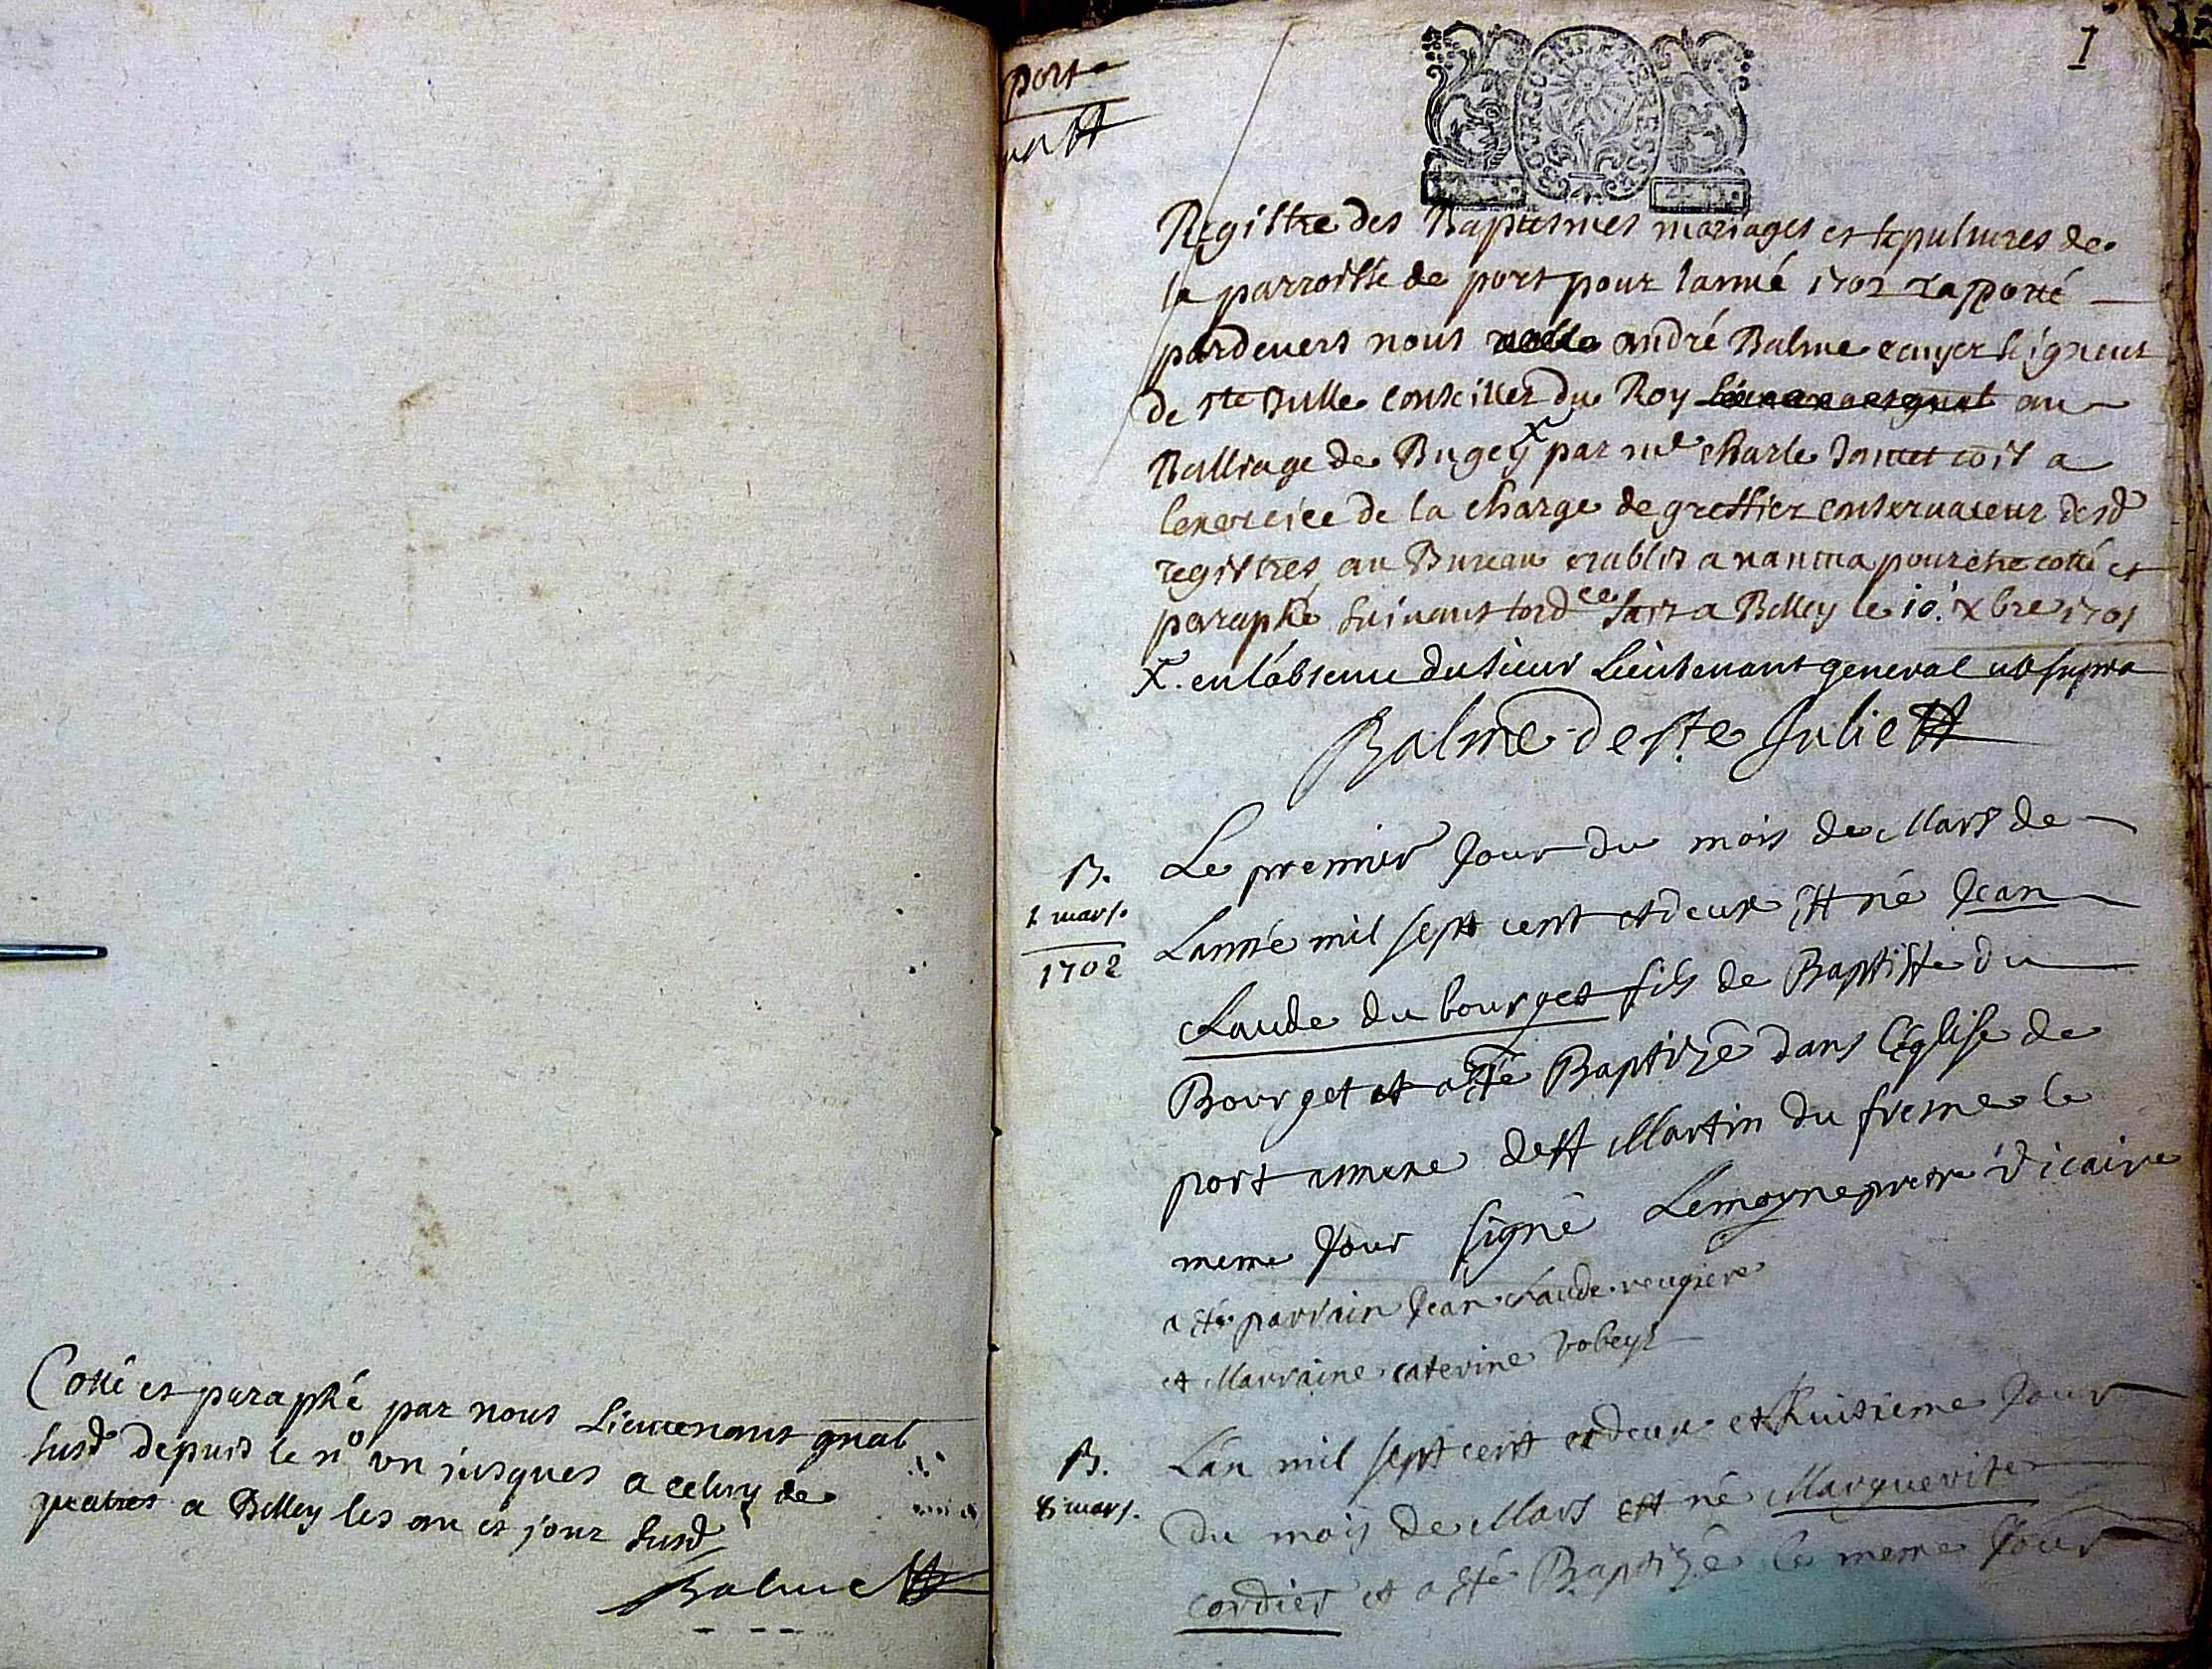 Cotté et paraphé par nous Lieutenant gnal
susd depuis le no un jusques a celuy de
quatres a Belley les an et jour susd
Balme
port
un
1
BOURGOGNE ET BRESSE
Registre des Baptesmes mariages et sepultures de
la parroisse de port pour lanné 1702 rapporté
pardevers nous andré Balme ecuyer seigneur
de ste Julie conseiller du Roy au
Balliage de Bugey x par me charle Jantet a
lexercice de la charge de greffier conservateur desd
registres au Bureau etablis a nantua pour etre cotté et
paraphé suivant lordce fait a Belley le 10. xbre 1701
x. en l'absence du sieur Lieutenant general ut supra
Balme de ste Julie
B. Le premier Jour du mois de Mars de
1 mars.
1702
Lanné mil sept cent et deux est né Jean
Claude du bourget fils de Baptiste du
Bourget et a esté Baptizé dans l'église de
port annexe de st Martin du fresne le
meme Jour signé Lemoyne prestre vicaire
a été parrain Jean Claude
et Marraine caterine
B. L'an mil sept cent et deux et huitieme Jour
8 mars.
Du mois de Mars est né Marguerite
cordier et a été Baptizé le meme Jour